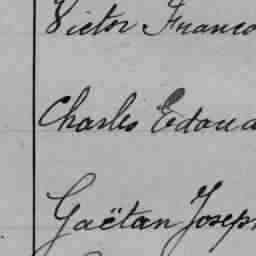 Victor Franco
Charles Edoua
Gaëtan Joseph